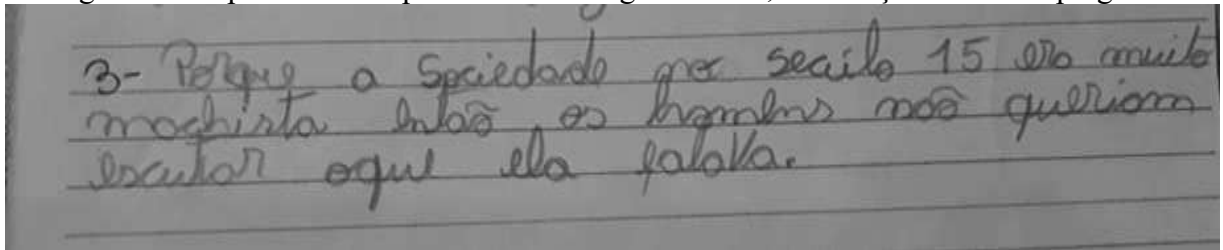 3- Porque a Sociedade no secúlo 15 era muito
machista então os homens não queriam
escutar oque ela falava.